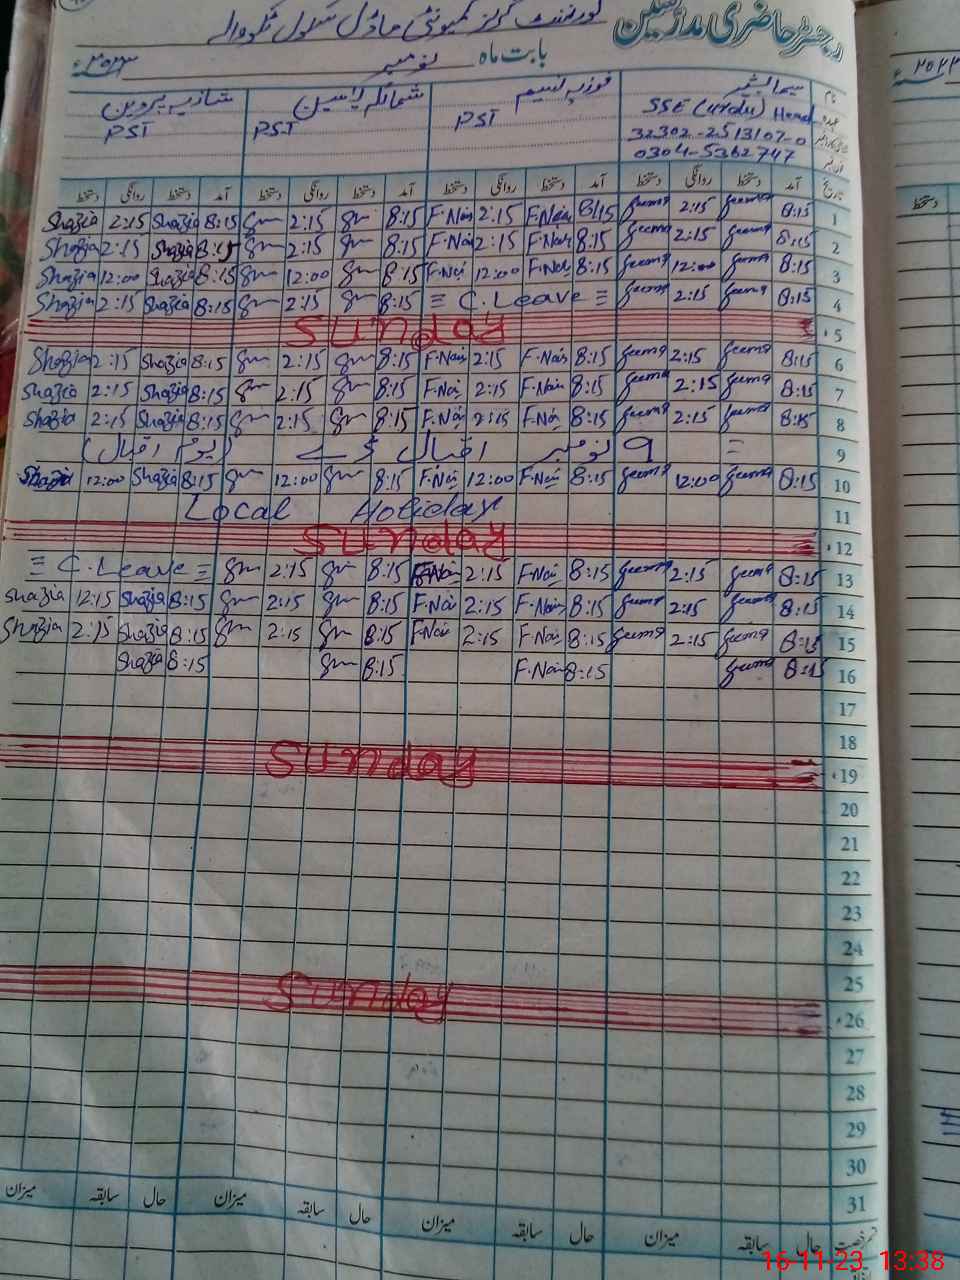 رجسٹر حاضری مدرسین گورنمنٹ گرلز کمیونٹی ماڈل سکول
بابت ماہ نومبر ۲۰۲۳ء
نام سیما بشیر فوزیہ نسیم شمائلہ یاسین شازیہ پروین
عہدہ SSE (urdu) Head PST PST PST
32302-2513107-0
0304-5362747
تاریخ آمد دستخط روانگی دستخط آمد دستخط روانگی دستخط آمد دستخط روانگی دستخط آمد دستخط روانگی دستخط
Shazia 2:15 Shazia 8:15 Sm 2:15 Sm 8:15 F.Nasi 2:15 F.Nasi 8:15 Seema 2:15 Seema 8:15 1
Shazia 2:15 Shazia 8:15 Sm 2:15 Sm 8:15 F.Nasi 2:15 F.Nasi 8:15 Seema 2:15 Seema 8:15 2
Shazia 12:00 Shazia 8:15 Sm 12:00 Sm 8:15 F.Nasi 12:00 F.Nasi 8:15 Seema 12:00 Seema 8:15 3
Shazia 2:15 Shazia 8:15 Sm 2:15 Sm 8:15 = C.Leave = Seema 2:15 Seema 8:15 4
Sunday 5
Shazia 2:15 Shazia 8:15 Sm 2:15 Sm 8:15 F.Nasi 2:15 F.Nasi 8:15 Seema 2:15 Seema 8:15 6
Shazia 2:15 Shazia 8:15 Sm 2:15 Sm 8:15 F.Nasi 2:15 F.Nasi 8:15 Seema 2:15 Seema 8:15 7
Shazia 2:15 Shazia 8:15 Sm 2:15 Sm 8:15 F.Nasi 2:15 F.Nasi 8:15 Seema 2:15 Seema 8:15 8
= ۹ نومبر اقبال ڈے (یوم اقبال) 9
Shazia 12:00 Shazia 8:15 Sm 12:00 Sm 8:15 F.Nasi 12:00 F.Nasi 8:15 Seema 12:00 Seema 8:15 10
Local Holiday 11
Sunday 12
= C.Leave = Sm 2:15 Sm 8:15 F.Nasi 2:15 F.Nasi 8:15 Seema 2:15 Seema 8:15 13
Shazia 12:15 Shazia 8:15 Sm 2:15 Sm 8:15 F.Nasi 2:15 F.Nasi 8:15 Seema 2:15 Seema 8:15 14
Shazia 2:15 Shazia 8:15 Sm 2:15 Sm 8:15 F.Nasi 2:15 F.Nasi 8:15 Seema 2:15 Seema 8:15 15
Shazia 8:15 Sm 8:15 F.Nasi 8:15 Seema 8:15 16
17
18
Sunday 19
20
21
22
23
24
25
Sunday 26
27
28
29
30
31
حال سابقہ میزان حال سابقہ میزان حال سابقہ میزان حال سابقہ میزان
16-11-23 13:38